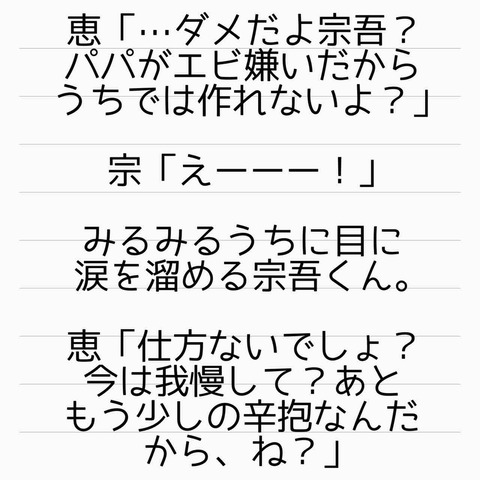 恵「…ダメだよ宗吾？
パパがエビ嫌いだから
うちでは作れないよ？」
宗「えーーー！」
みるみるうちに目に
涙を溜める宗吾くん。
恵「仕方ないでしょ？
今は我慢して？あと
もう少しの辛抱なんだ
から、ね？」